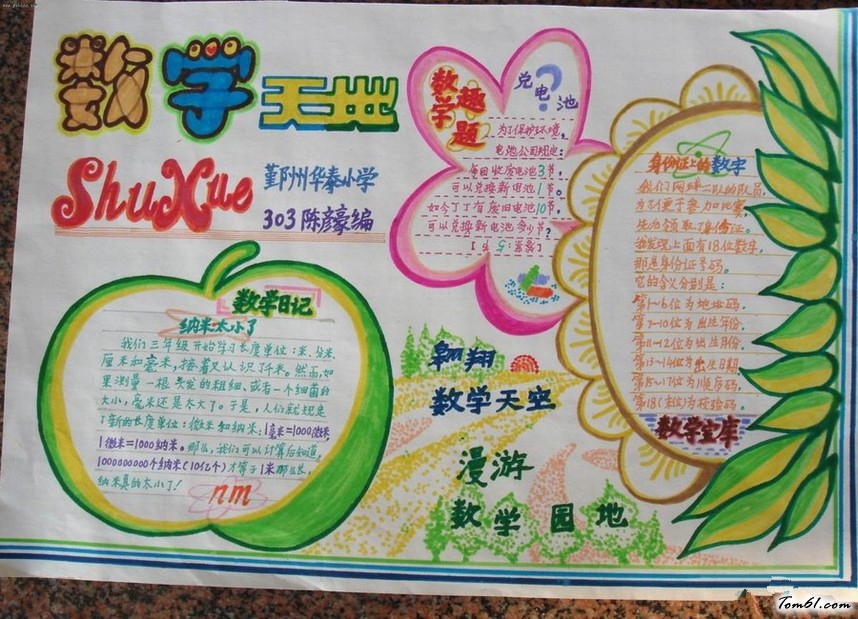 数学天地
ShuXue
鄞州华泰小学
303 陈彦豪编
数学日记
纳米太小了
我们三年级开始学习长度单位:米、分米、
厘米和毫米,接着又认识了千米。然而,如
果测量一根头发的粗细、或者一个细菌的
大小,毫米还是太大了。于是,人们就规定
了新的长度单位:微米和纳米:1毫米=1000微米,
1微米=1000纳米。那么,我们可以计算后知道,
1000000000个纳米(10亿个)才等于1米那么长,
纳米真的太小了!
nm
数学趣题
兑电池
?
为了保护环境,
电池公司规定:
每回收废电池3节,
可以兑换新电池1节。
如今丁丁有废旧电池10节,
可以兑换新电池多少节?
[答案:5节]
翱翔
数学天空
漫游
数学园地
身份证上的数字
我们网球二队的队员,
为了便于参加比赛,
先办领取了身份证。
我发现上面有18位数字,
那是身份证号码。
它的含义分别是:
第1~6位为地址码。
第7~10位为出生年份。
第11~12位为出生月份。
第13~14位为出生日期
第15~17位为顺序码。
第18(末)位为校验码。
数学宝库
Tom61.com